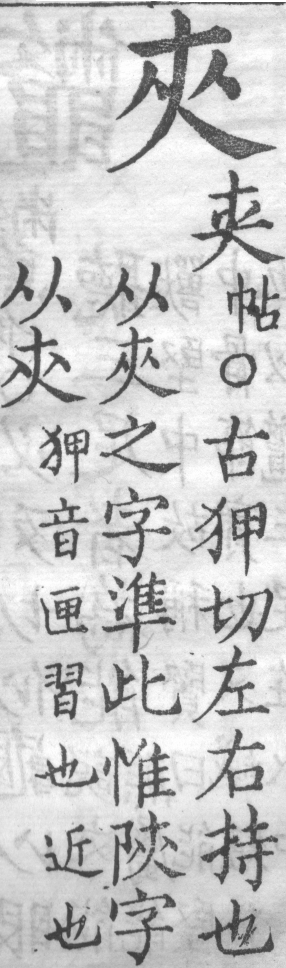 夾
夹帖〇古狎切左右持也
从夾之字準此惟陝字
从㚒狎音匣習也近也